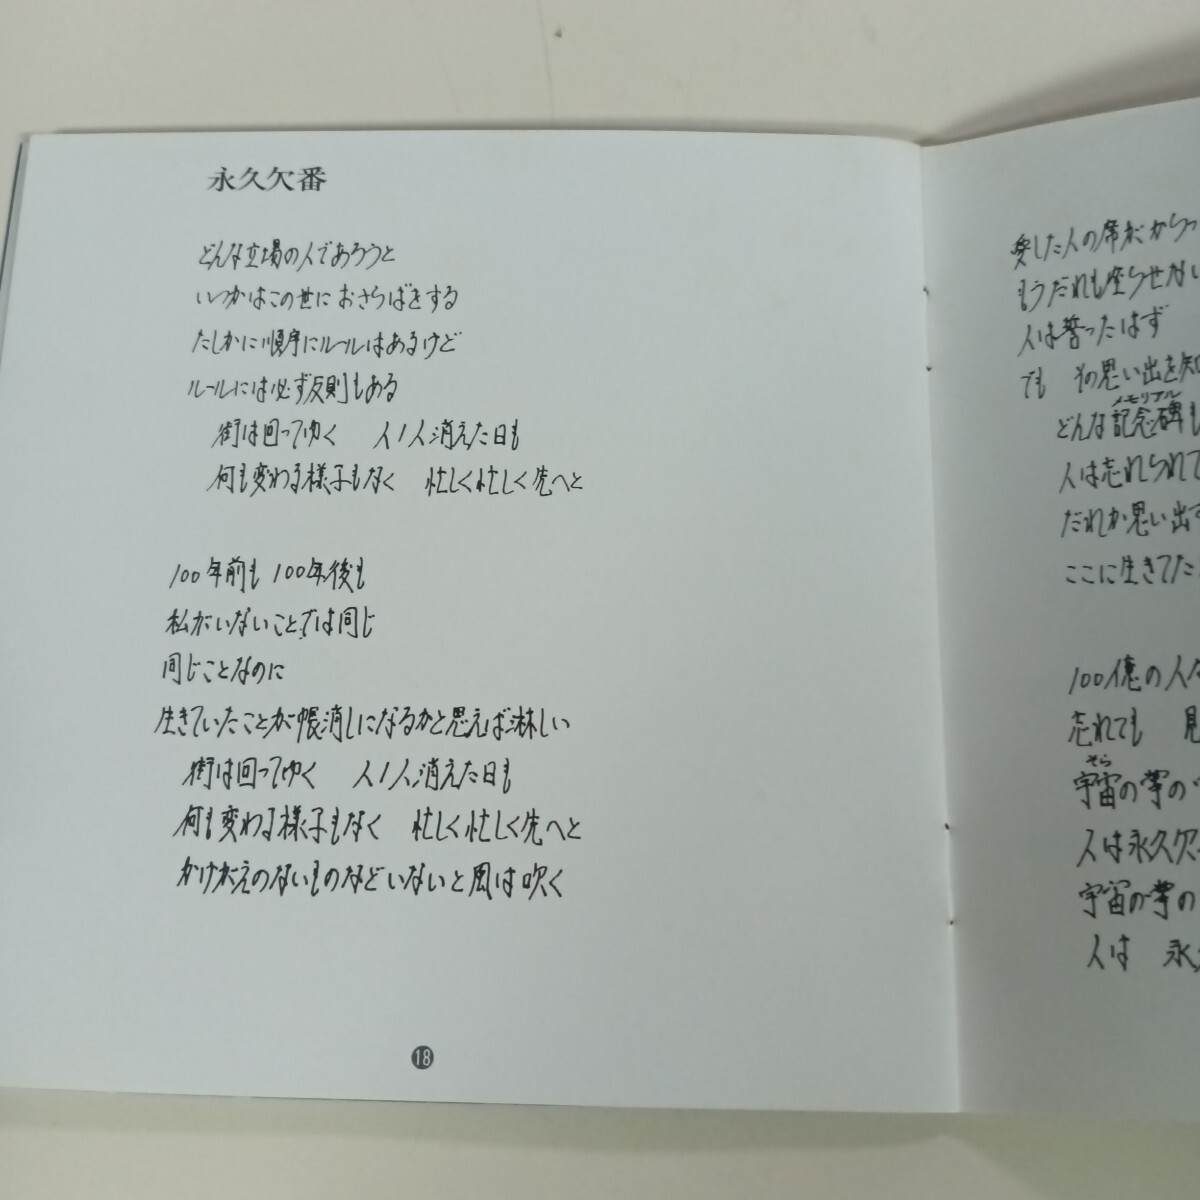 永久欠番
どんな立場の人であろうと
いつかはこの世に おさらばをする
たしかに順序にルールはあるけど
ルールには必ず反則もある
街は回ってゆく　人1人消えた日も
何も変わる様子もなく　忙しく忙しく先へと
100年前も 100年後も
私がいないことでは同じ
同じことなのに
生きていたことが帳消しになるかと思えば淋しい
街は回ってゆく　人1人消えた日も
何も変わる様子もなく　忙しく忙しく先へと
かけがえのないものなどいないと風は吹く
18
愛した人の席がからっ
もうだれも座らせない
人は誓ったはず
でも　その思い出を知
メモリアル
どんな記念碑も
人は忘れられて
だれか思い出す
ここに生きてた
100億の人
忘れても　見
そら
宇宙の掌の
人は永久欠
宇宙の掌の
人は　永